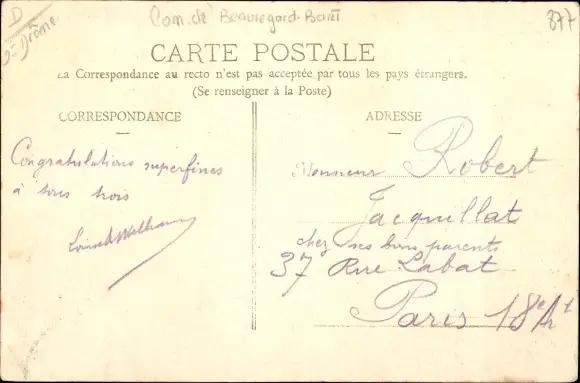 D
Drôme
Com. de Beauregard-Baret
877
CARTE POSTALE
La Correspondance au recto n'est pas acceptée par tous les pays étrangers.
(Se renseigner à la Poste)
CORRESPONDANCE
Congratulations superfines
à tous trois
ADRESSE
Monsieur Robert
Jacquillat
chez ses bons parents
37 Rue Labat
Paris 18e Art